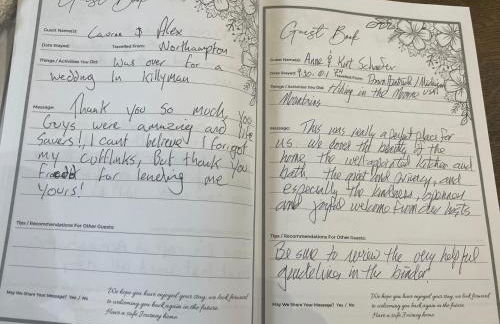 Guest Book
Guest Name(s): Laura & Alex
Date Stayed: Travelled From: Northampton
Things / Activities You Did: Was over for a
wedding In Killyman
Message: Thank you so much, you
Guys were amazing and life
Savers!, I cant believe I forgot
my Cufflinks, but thank you
for lending me
yours!
Tips / Recommendations For Other Guests:
May We Share Your Message? Yes / No
We hope you have enjoyed your stay, we look forward
to welcoming you back again in the future.
Have a safe Journey home
Guest Book
Guest Name(s): Anne & Kurt
Date Stayed: Travelled From:
Things / Activities You Did: Hiking in the Mourne
Mountains
Message: This was really a perfect place for
us. We loved the beauty of the
home, the well-appointed kitchen and
bath, the quiet and privacy, and
especially the kindness,
and joyful welcome from our hosts
Tips / Recommendations For Other Guests:
Be sure to review the very helpful
guidelines in the binder!
May We Share Your Message? Yes / No
We hope you have enjoyed your stay, we look forward
to welcoming you back again in the future.
Have a safe Journey home